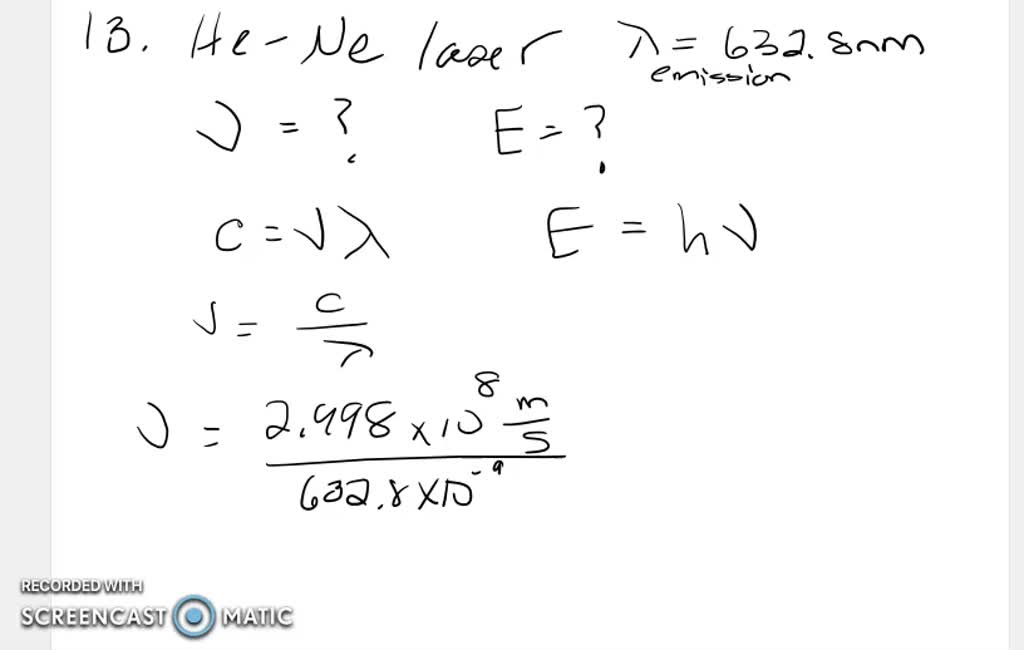 13. He-Ne laser λ = 632.8nm
emission
ν = ? E = ?
c = νλ E = hν
ν = c/λ
ν = 2.998 x 10⁸ m/s
632.8 x 10⁻⁹
RECORDED WITH
SCREENCAST MATIC